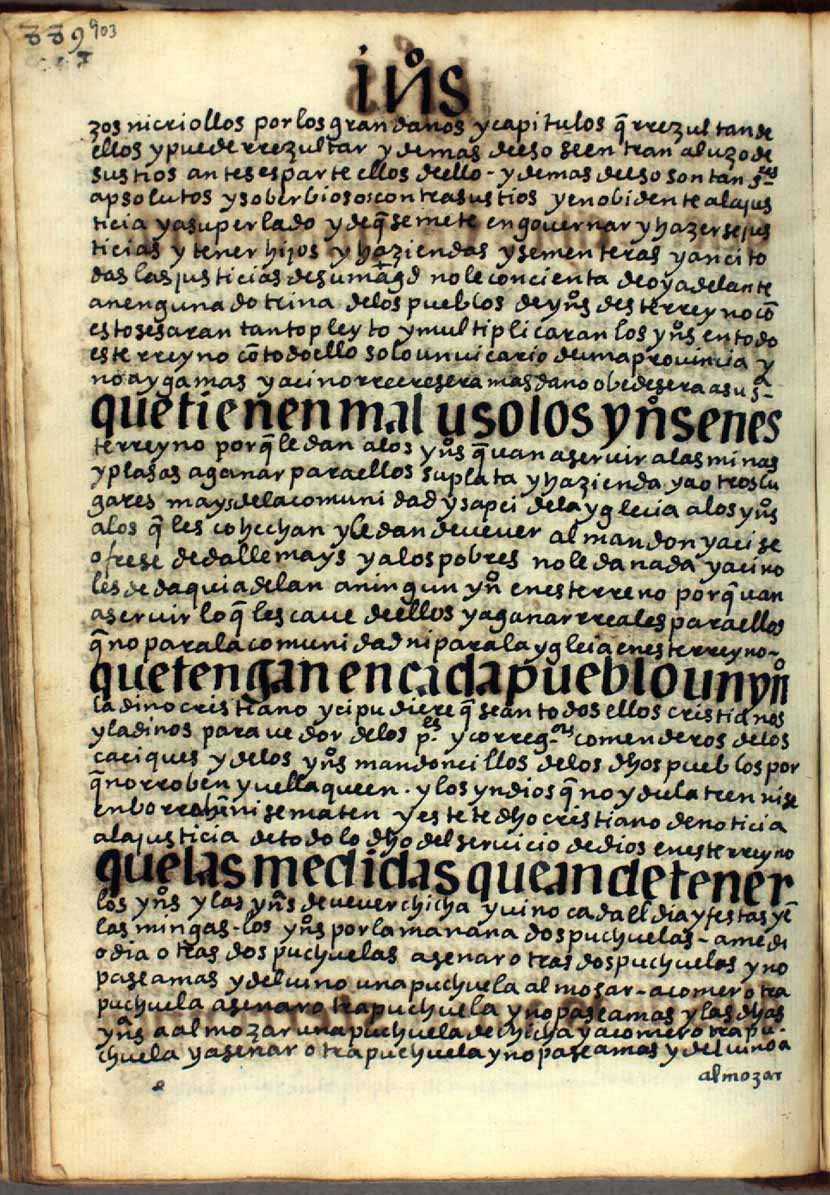 889 903
iños
zos nicriollos por los gran danos y capitulos q̄ rrezultan de
ellos y puede rrezultar y demas deeso se en tran al uzo de
sus tios antes es parte ellos dello - y demas deeso son tan s.res
apsolutos y soberbiosos contra sus tios y enobidente a la jus
ticia y a su perlado y de q̄ se mete en governar y hazerse jus
ticias y tener hijos y haziendas y sementeras y anci to
das las justicias de su magd no le concienta de oy adelante
anenguna dotrina de los pueblos de yñs deste rreyno cō
esto sesaran tanto pleyto y multiplicaran los yñs en todo
este rreyno cō todo ello solo un vicario de una provincia y
no ayga mas y aci no rrecresera mas dano obedesera a su s.a
que tienen mal uso los yños en es
te rreyno porq̄ le dan a los yños q̄ uan a seruir a las minas
y plasas a ganar para ellos su plata y hazienda y a otros lu
gares mays de la comunidad y sapci de la yglecia a los yños
a los q̄ les cohechan y le dan de uever al mandon y aci se
ofrese de dalle mays y a los pobres no le da nada y aci no
les de daqui adelan aningun yñ en este rreno porq̄ uan
a seruir lo q̄ les cave de ellos y a ganar rreales para ellos
q̄ no para la comunidad ni para la ygleia en este rreyno-
que tengan en cada pueblo un yño
ladino cristiano y ci pudiere q̄ sean todos ellos cristianos
y ladinos para ue dor de los p.es y correg.ores comenderos de los
caciques y de los yños mandoncillos de los dhos pueblos por
q̄ no rroben y uellaqueen . y los yndios q̄ no ydulatren ni se
enborrachen ni se maten y este te dho cristiano de noticia
a la justicia de todo lo dho del seruicio de dios en este rreyno
que las medidas que an de tener
los yños y las yñas de uever chicha y uino cada el dia y festas y ē
las mingas - los yños por la manana dos puchuelas - a me di
o dia otras dos puchuelas a senar otras dos puchuelas y no
pase a mas y del uino una puchuela al mosar - a comer otra
puchuela a senar otra puchuela y no pase a mas y las dhas
yñas a almozar una puchuela de chicha y a comer otra pu-
chuela y a senar otra puchuela y no pase a mas y del uino a
almozar